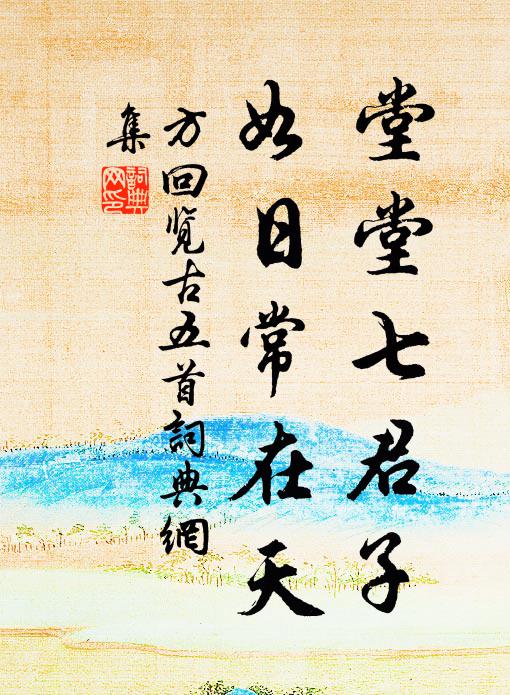 堂堂七君子
如日常在天
方回览古五首詞典網
集
詞典
网印